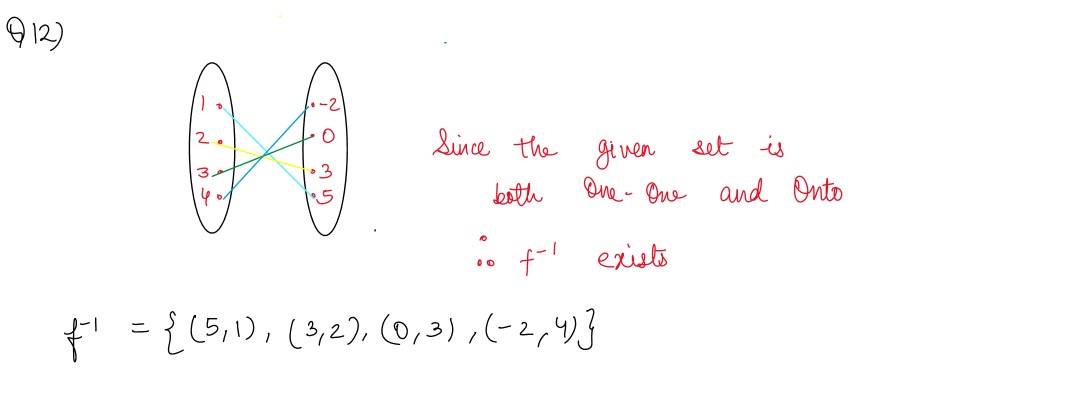 Q12)
1 -2
2 0
3 3
4 5
Since the given set is
both One-One and Onto
∴ f⁻¹ exists
f⁻¹ = {(5,1), (3,2), (0,3), (-2,4)}